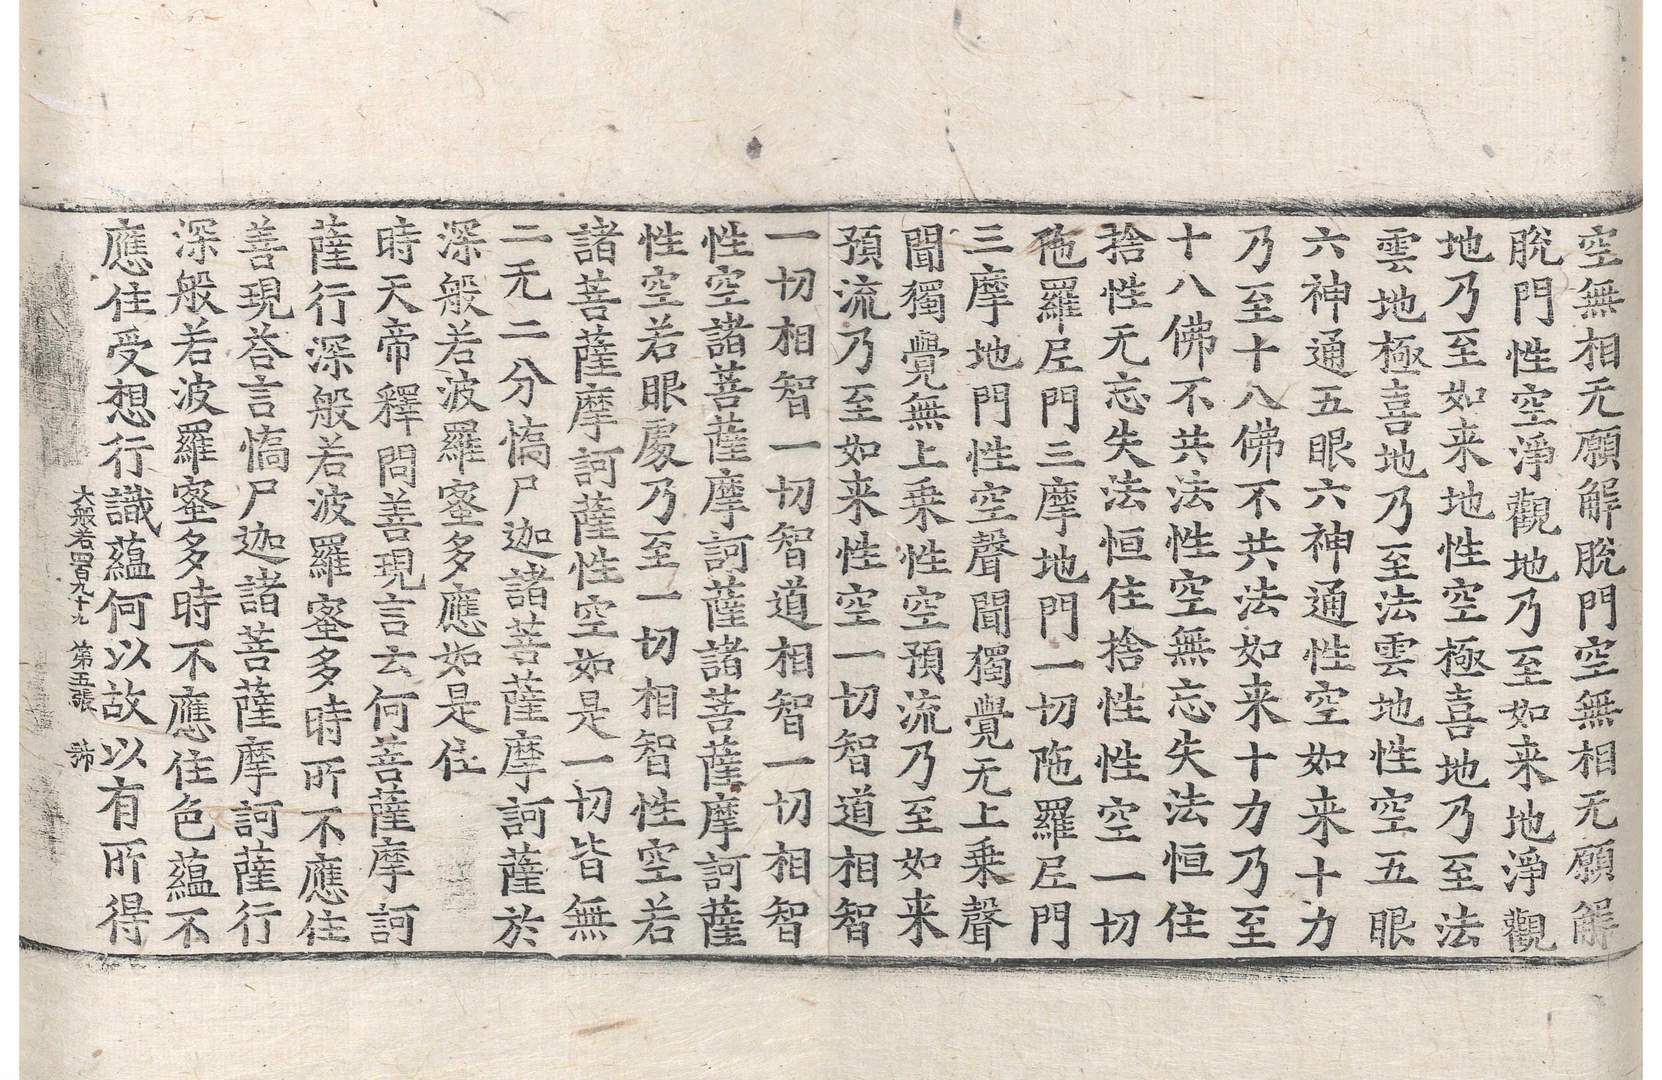 空無相无願解脫門空無相无願解
脫門性空淨觀地乃至如来地淨觀
地乃至如来地性空極喜地乃至法
雲地極喜地乃至法雲地性空五眼
六神通五眼六神通性空如来十力
乃至十八佛不共法如来十力乃至
十八佛不共法性空無忘失法恒住
捨性无忘失法恒住捨性性空一切
陁羅尼門三摩地門一切陁羅尼門
三摩地門性空聲聞獨覺无上乗聲
聞獨覺無上乗性空預流乃至如来
預流乃至如来性空一切智道相智
一切相智一切智道相智一切相智
性空諸菩薩摩訶薩諸菩薩摩訶薩
性空若眼處乃至一切相智性空若
諸菩薩摩訶薩性空如是一切皆無
二无二分憍尸迦諸菩薩摩訶薩於
深般若波羅蜜多應如是住
時天帝釋問善現言云何菩薩摩訶
薩行深般若波羅蜜多時所不應住
善現荅言憍尸迦諸菩薩摩訶薩行
深般若波羅蜜多時不應住色蘊不
應住受想行識蘊何以故以有所得
大般若四百九十九 第五張 諦